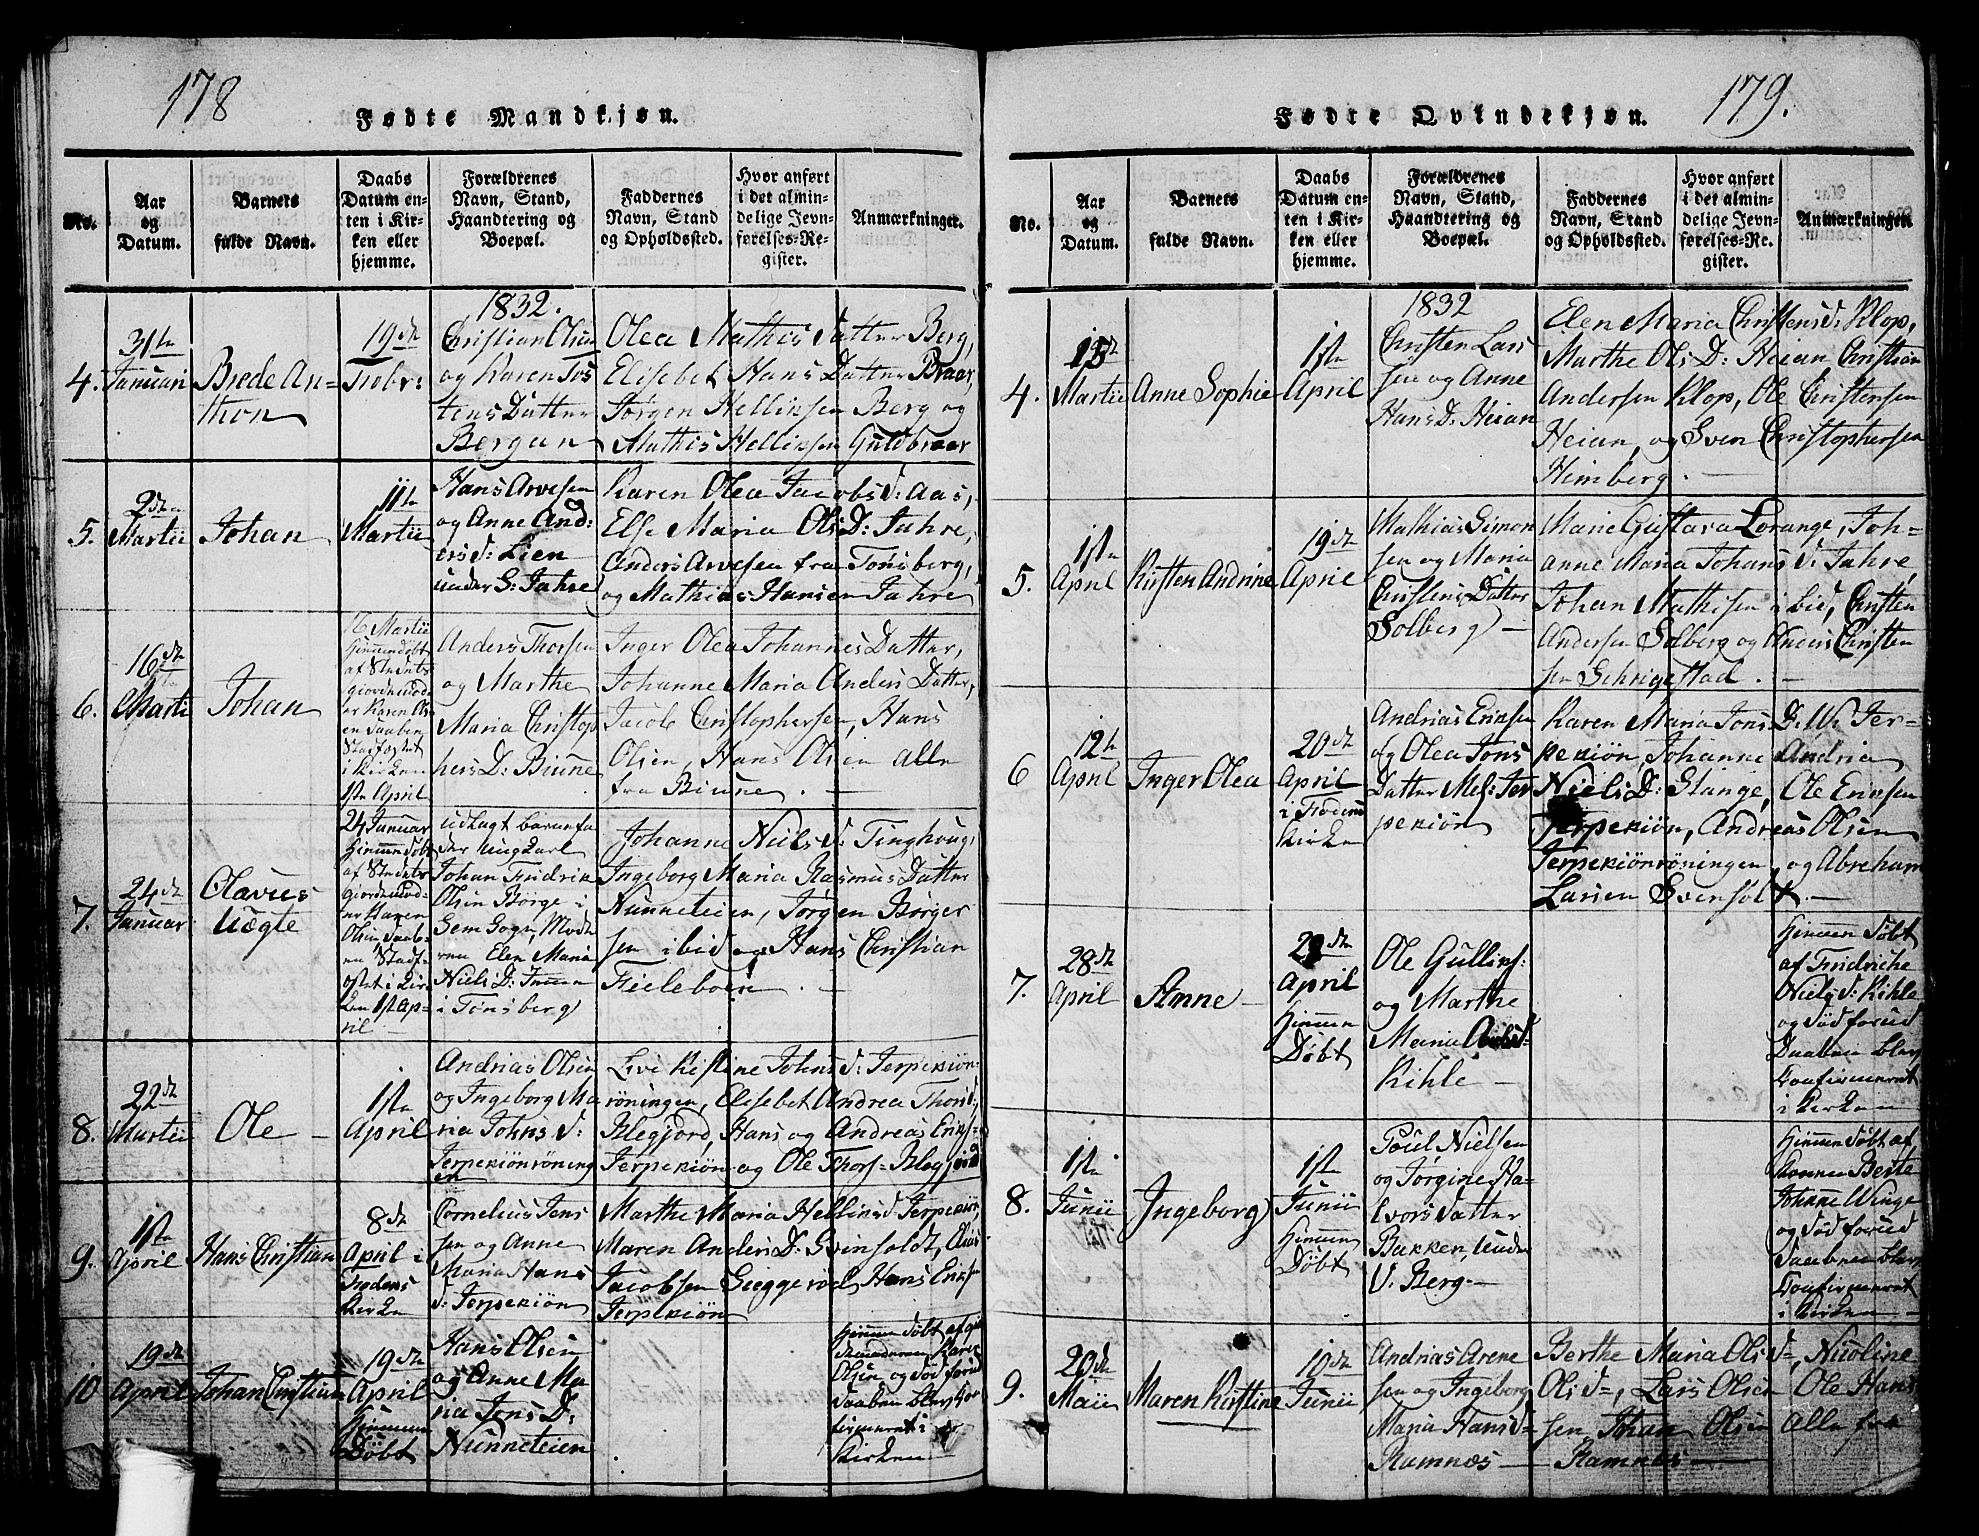 178
Fødte Mandkjøn.
No.
Aar
og
Datum.
Barnets
fulde Navn.
Daabs
Datum en-
ten i Kir-
ken eller
hjemme.
Forældrenes
Navn, Stand,
Haandtering og
Boepæl.
Faddernes
Navn, Stand
og Opholdssted.
Hvor anført
i det almin-
delige Jevn-
førelses-Re-
gister.
Anmærkninger.
1832.
4.
31te
Januari
Brede An-
thon
19de
Febr:
Christian Olsen
og Karen Tos
tens Datter
Bergan
Olea Mathis Datter Berg,
Elisebet Hans Datter Braar,
Jørgen Hellinsen Berg og
Mathis Hellinsen Guldbraar
5.
2de
Martii
Johan
11te
Martii
Hans Arvesen
og Anne And:
ersd: Lien
under S: Jahre
Karen Olea Jacobsd: Aas,
Else Maria Ols D: Jahre,
Anders Arvesen fra Tønsberg,
og Mathias Hansen Jahre
6.
16de
Marti
Johan
16 Martii
Hiemmedøbt
af Stedets
giordemod
er Karen Ols
en Saaben
Stadfæstet
i Kirken
1ste April
Anders Thorsen
og Marthe
Maria Christop
hers D: Biune
Inger Olea Johannes Datter,
Johanne Maria Anders Datter,
Jacob Christophersen, Hans
Olsen, Hans Olsen alle
fra Biune.
7.
24de
Januar
Olavus
Uægte
24 Januar
Hiemmedøbt
af Stedets
giordemod-
er Karen
Olsen Saab-
en Stadf-
æstet i Kir-
ken 1ste Ap-
ril
udlagt barnefa
der Ungkarl
Johan Fridrik
Olsen Børge i
Sem Sogn, Mod
ren Elen Maria
Niels D:
i Tønsberg
Johanne Nielsd: Tinghoug,
Ingeborg Maria Rasmus Datter
Nunneteien, Jørgen Børger
sen ibid og Hans Christian
Fieleboen.
8.
22de
Martii
Ole
1ste
April
Andrias Olsen
og Ingeborg Ma
ria Johns d:
Jerpekiønröning
en
Live Kistine Johns d: Jerpekiøn:
röningen, Elisebet Andrea Thorsd:
Klegjord, Hans og Andreas Eriks=
Jerpekiøn og Ole Thors=
9.
1ste
April
Hans Christian
8de
April i
Fredens
Kirken
Cornelius Jens
sen og Anne
Maria Hans
d: Jerpekiøn
Marthe Maria Hellinsd Jerpekiøn,
Maren Anders D: Svinholdt,
Jacobsen Giggerød Hans Eriksen
Jerpekiøn
10
19de
April
Johan Cristian
19de
April
Hiemme
Døbt
Hans Olsen
og Anne Ma
ria Jens D:
Nunneteien
Hiemme døbt af
Karen
Olsen og død forud
Daaben blev
firmeret i
Kirken
179.
Fødte Qvindekjøn.
No.
Aar
og
Datum.
Barnets
fulde Navn.
Daabs
Datum en-
ten i Kir-
ken eller
hjemme.
Forældrenes
Navn, Stand,
Haandtering og
Boepæl.
Faddernes
Navn, Stand
og Opholdssted.
Hvor anført
i det almin-
delige Jevn-
førelses-Re-
gister.
Anmærkninger.
1832
4.
15de
Martii
Anne Sophie
1ste
April
Christen Lars
sen og Anne
Hans D: Heian
Elen Maria Christensd: Klop,
Marthe Ols D: Heian Christian
Andersen Klop, Ole Christensen
Heian, og Sven Christophersen
Heimberg.
5.
1ste
April
Kirsten Andrine
19de
April
Mathias Simon
sen og Maria
Christens Datter
Solberg
Marie Gustava Lorange, Joh-
anne Maria Johans D: Jahre,
Johan Mathisen ibid, Christen
Andersen Solberg og Anders Christen
sen Schrigestad.
6
12te
April
Inger Olea
20de
April
i Fredens
Kirken
Andrias Eriksen
og Olea Jons
Datter Mel: Jer
pekiøn
Karen Maria Jons D: M: Jer-
pekiøn, Johanne Andria
Niels D: Stange, Ole Eriksen
Jerpekiøn, Andreas Olsen
Jerpekiønröningen og Abraham
Larsen Svinholt.
7.
28de
April
Anne
April
Hiemme
Døbt
Ole Gullins:
og Marthe
Maria
Kihle
Hiemme døbt
af Fridriche
Nielsd: Kihle
og død forud
Daaben blev
Confirmeret
i Kirken
8.
1ste
Junii
Ingeborg
1ste
Junii
Hiemme
Døbt
Poul Nielsen
og Jørgine Ha-
lvors datter
Bakken, under
V. Berg.
Hiemme døbt af
Konen Berte
Johnne Winge
og død forud
Daaben blev
Confirmeret
i Kirken
9.
20de
Maii
Maren Kirstine
10de
Junii
Andrias Arene
sen og Ingeborg
Maria Hansd=
Ramnæs
Berthe Maria Olsd=, Nicoline
Olsd=, Lars Olsen Ole Hans
sen Johan Olsen alle fra
Ramnæs